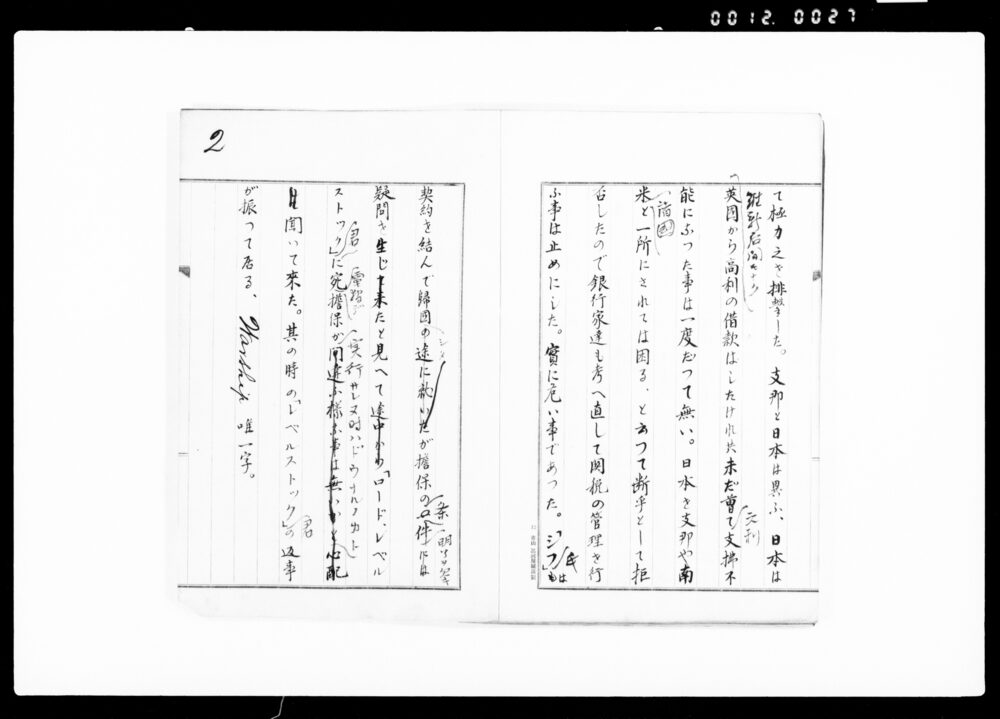 0012.0027
て極力之を排撃した。支那と日本は異ふ、日本は
維新后間モナク
英国から高利の借款はしたけれ共未だ曽て支拂不
元利
能にふつた事は一度だつて無い。日本を支那や南
米と一所にされては困る、と云つて断乎として拒
諸国
否したので銀行家達も考へ直して関税の管理を行
ふ事は止めにした。實に危い事であつた。「シフ」氏は
2
契約を結んで歸国の途に就いたが擔保の条件には
疑問を生じて来たと見へて途中から「ロード、レベル
ストック」君に宛擔保が間違ふ様な事は無いかと心配
電報ジ実行サレヌ時ハドウナルノカト
聞いて来た。其の時の「レベルストック」君の返事
が振つて居る、Hardship 唯一字。